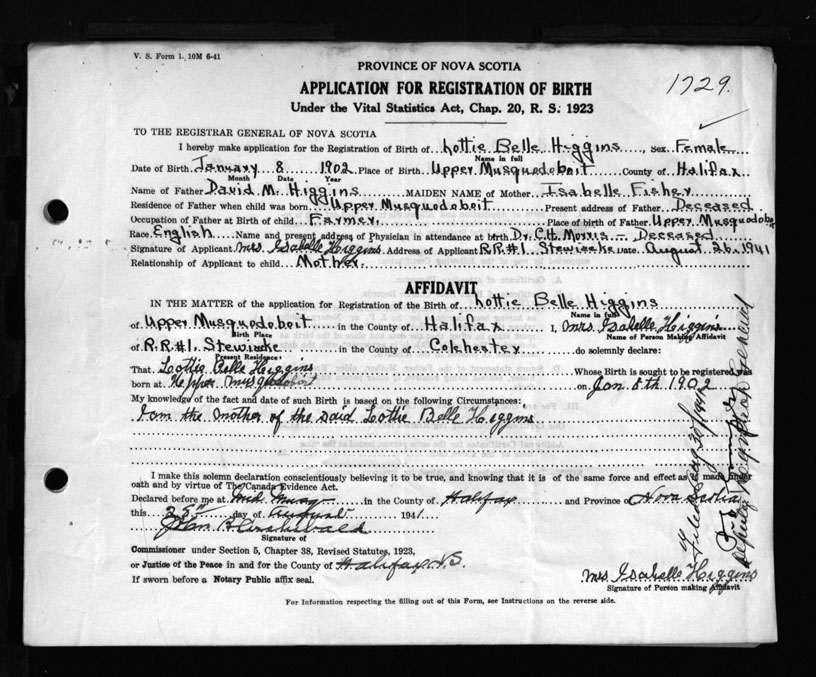 V. S. Form 1. 10M 6-41
PROVINCE OF NOVA SCOTIA
APPLICATION FOR REGISTRATION OF BIRTH
1729.
Under the Vital Statistics Act, Chap. 20, R. S. 1923
TO THE REGISTRAR GENERAL OF NOVA SCOTIA
I hereby make application for the Registration of Birth of Lottie Belle Higgins, Sex Female
Name in full
Date of Birth January 8 1902 Place of Birth Upper Musquodoboit County of Halifax
Month Date Year
Name of Father David M. Higgins MAIDEN NAME of Mother Isabelle Fisher
Residence of Father when child was born Upper Musquodoboit Present address of Father Deceased
Occupation of Father at Birth of child Farmer. Place of birth of Father Upper Musquodoboit
Race English Name and present address of Physician in attendance at birth Dr. C.H. Morris - Deceased
Signature of Applicant Mrs Isabelle Higgins Address of Applicant R.R#1. Stewiacke Date August 26, 1941
Relationship of Applicant to child Mother
AFFIDAVIT
IN THE MATTER of the application for Registration of the Birth of Lottie Belle Higgins
Name in full
of Upper Musquodoboit in the County of Halifax I, Mrs. Isabelle Higgins
Birth Place Name of Person Making Affidavit
of R.R#1. Stewiacke in the County of Colchester do solemnly declare:
Present Residence
That Lottie Belle Higgins Whose Birth is sought to be registered was
born at Upper Musquodoboit on Jan 8th 1902
My knowledge of the fact and date of such Birth is based on the following Circumstances:
I am the mother of the said Lottie Belle Higgins
I make this solemn declaration conscientiously believing it to be true, and knowing that it is of the same force and effect as if made under
oath and by virtue of The Canada Evidence Act.
Declared before me at Mid. Musq in the County of Halifax and Province of Nova Scotia
this day of August 1941
Signature of
Commissioner under Section 5, Chapter 38, Revised Statutes, 1923,
or Justice of the Peace in and for the County of Halifax N.S.
If sworn before a Notary Public affix seal.
Mrs Isabelle Higgins
Signature of Person making Affidavit
For Information respecting the filling out of this Form, see Instructions on the reverse side.
Filed Aug 30/1941
Deputy Registrar General